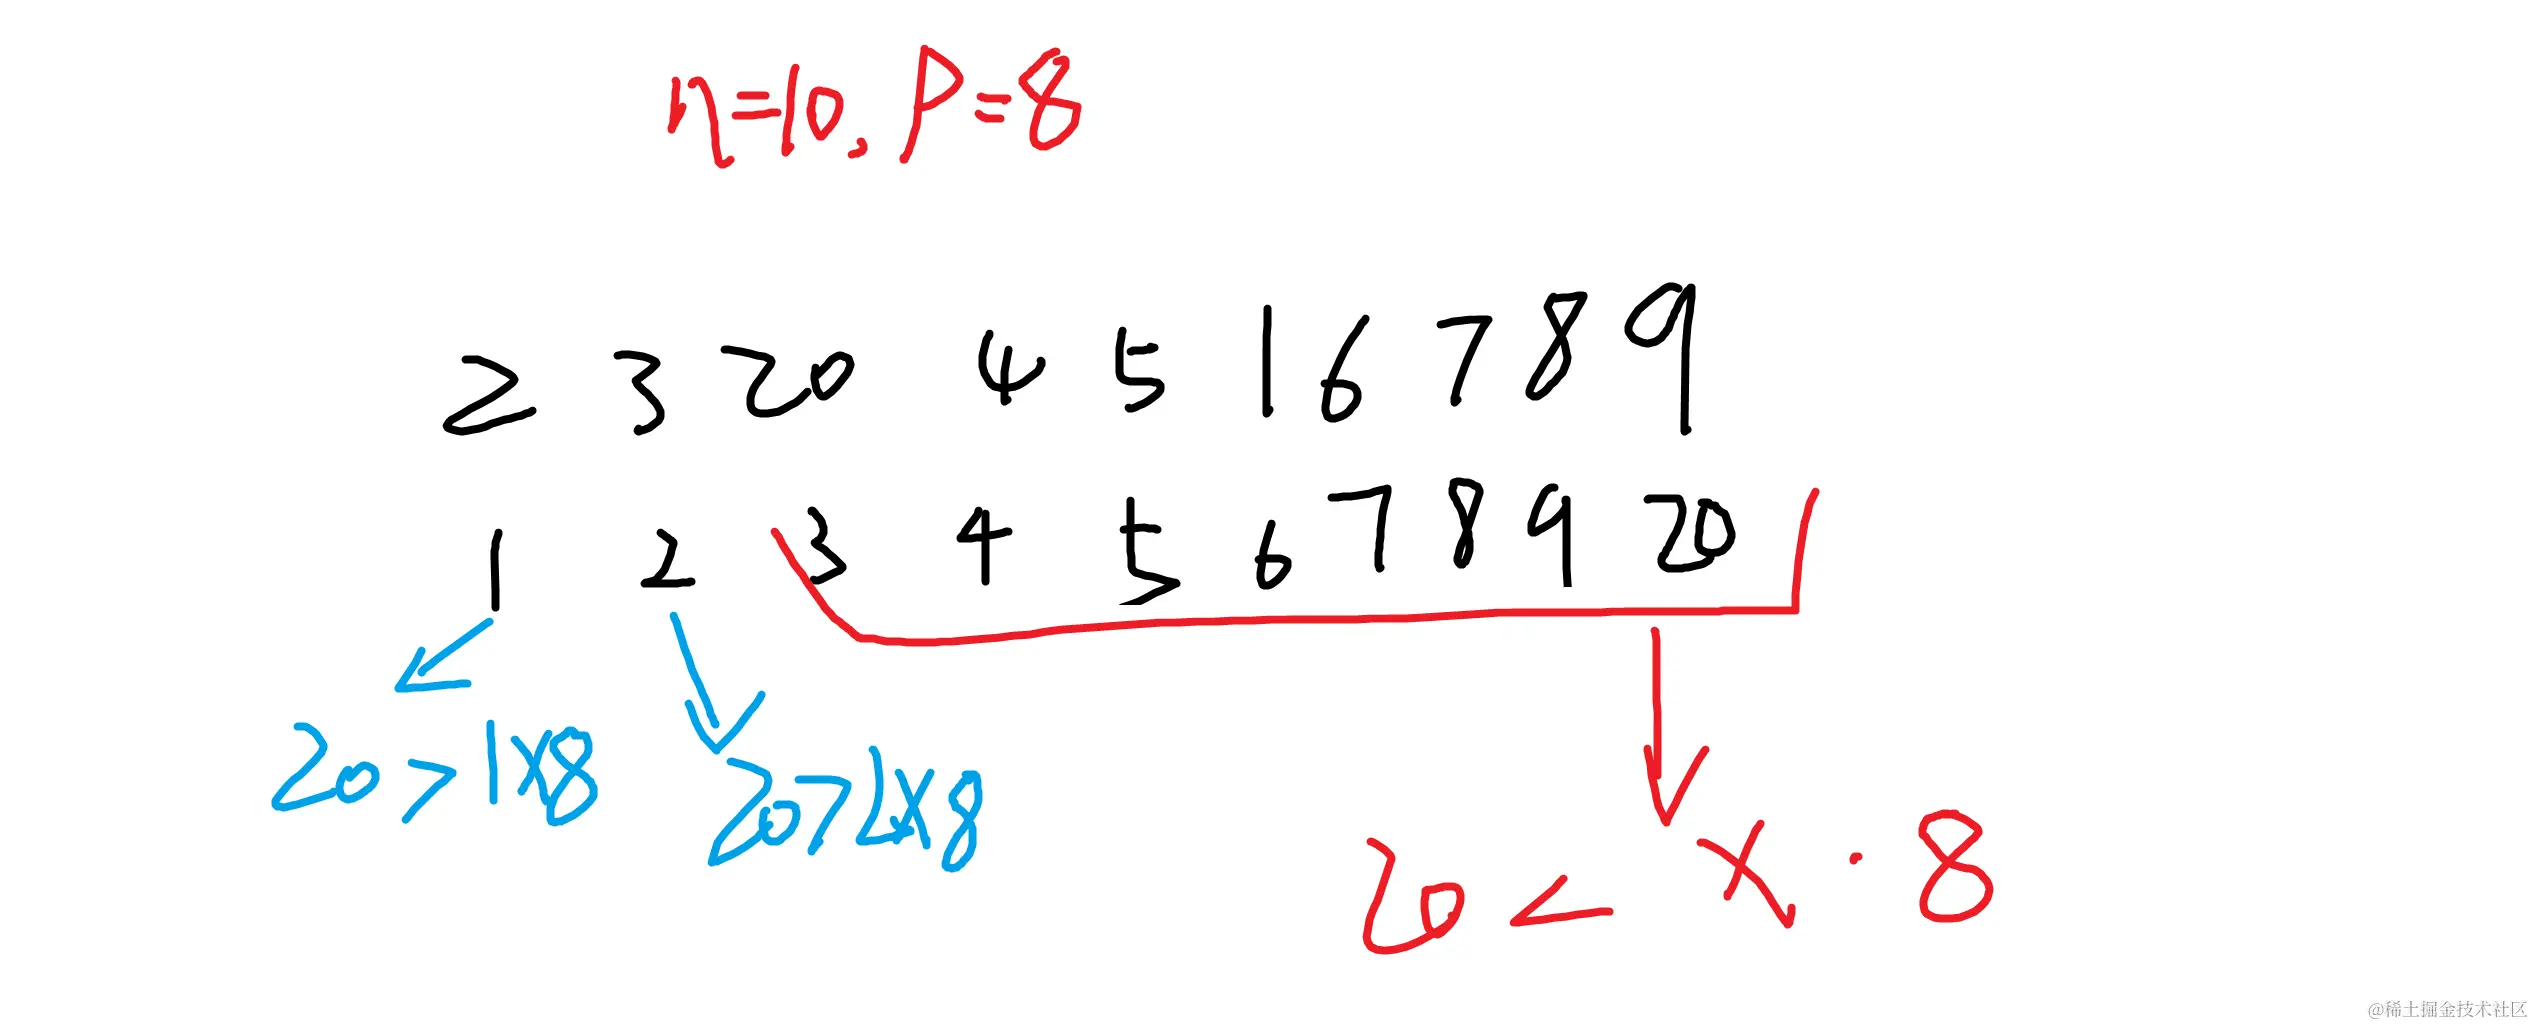 n=10, P=8
2 3 20 4 5 1 6 7 8 9
1 2 3 4 5 6 7 8 9 20
20>1×8
20>2×8
20<x·8
@稀土掘金技术社区